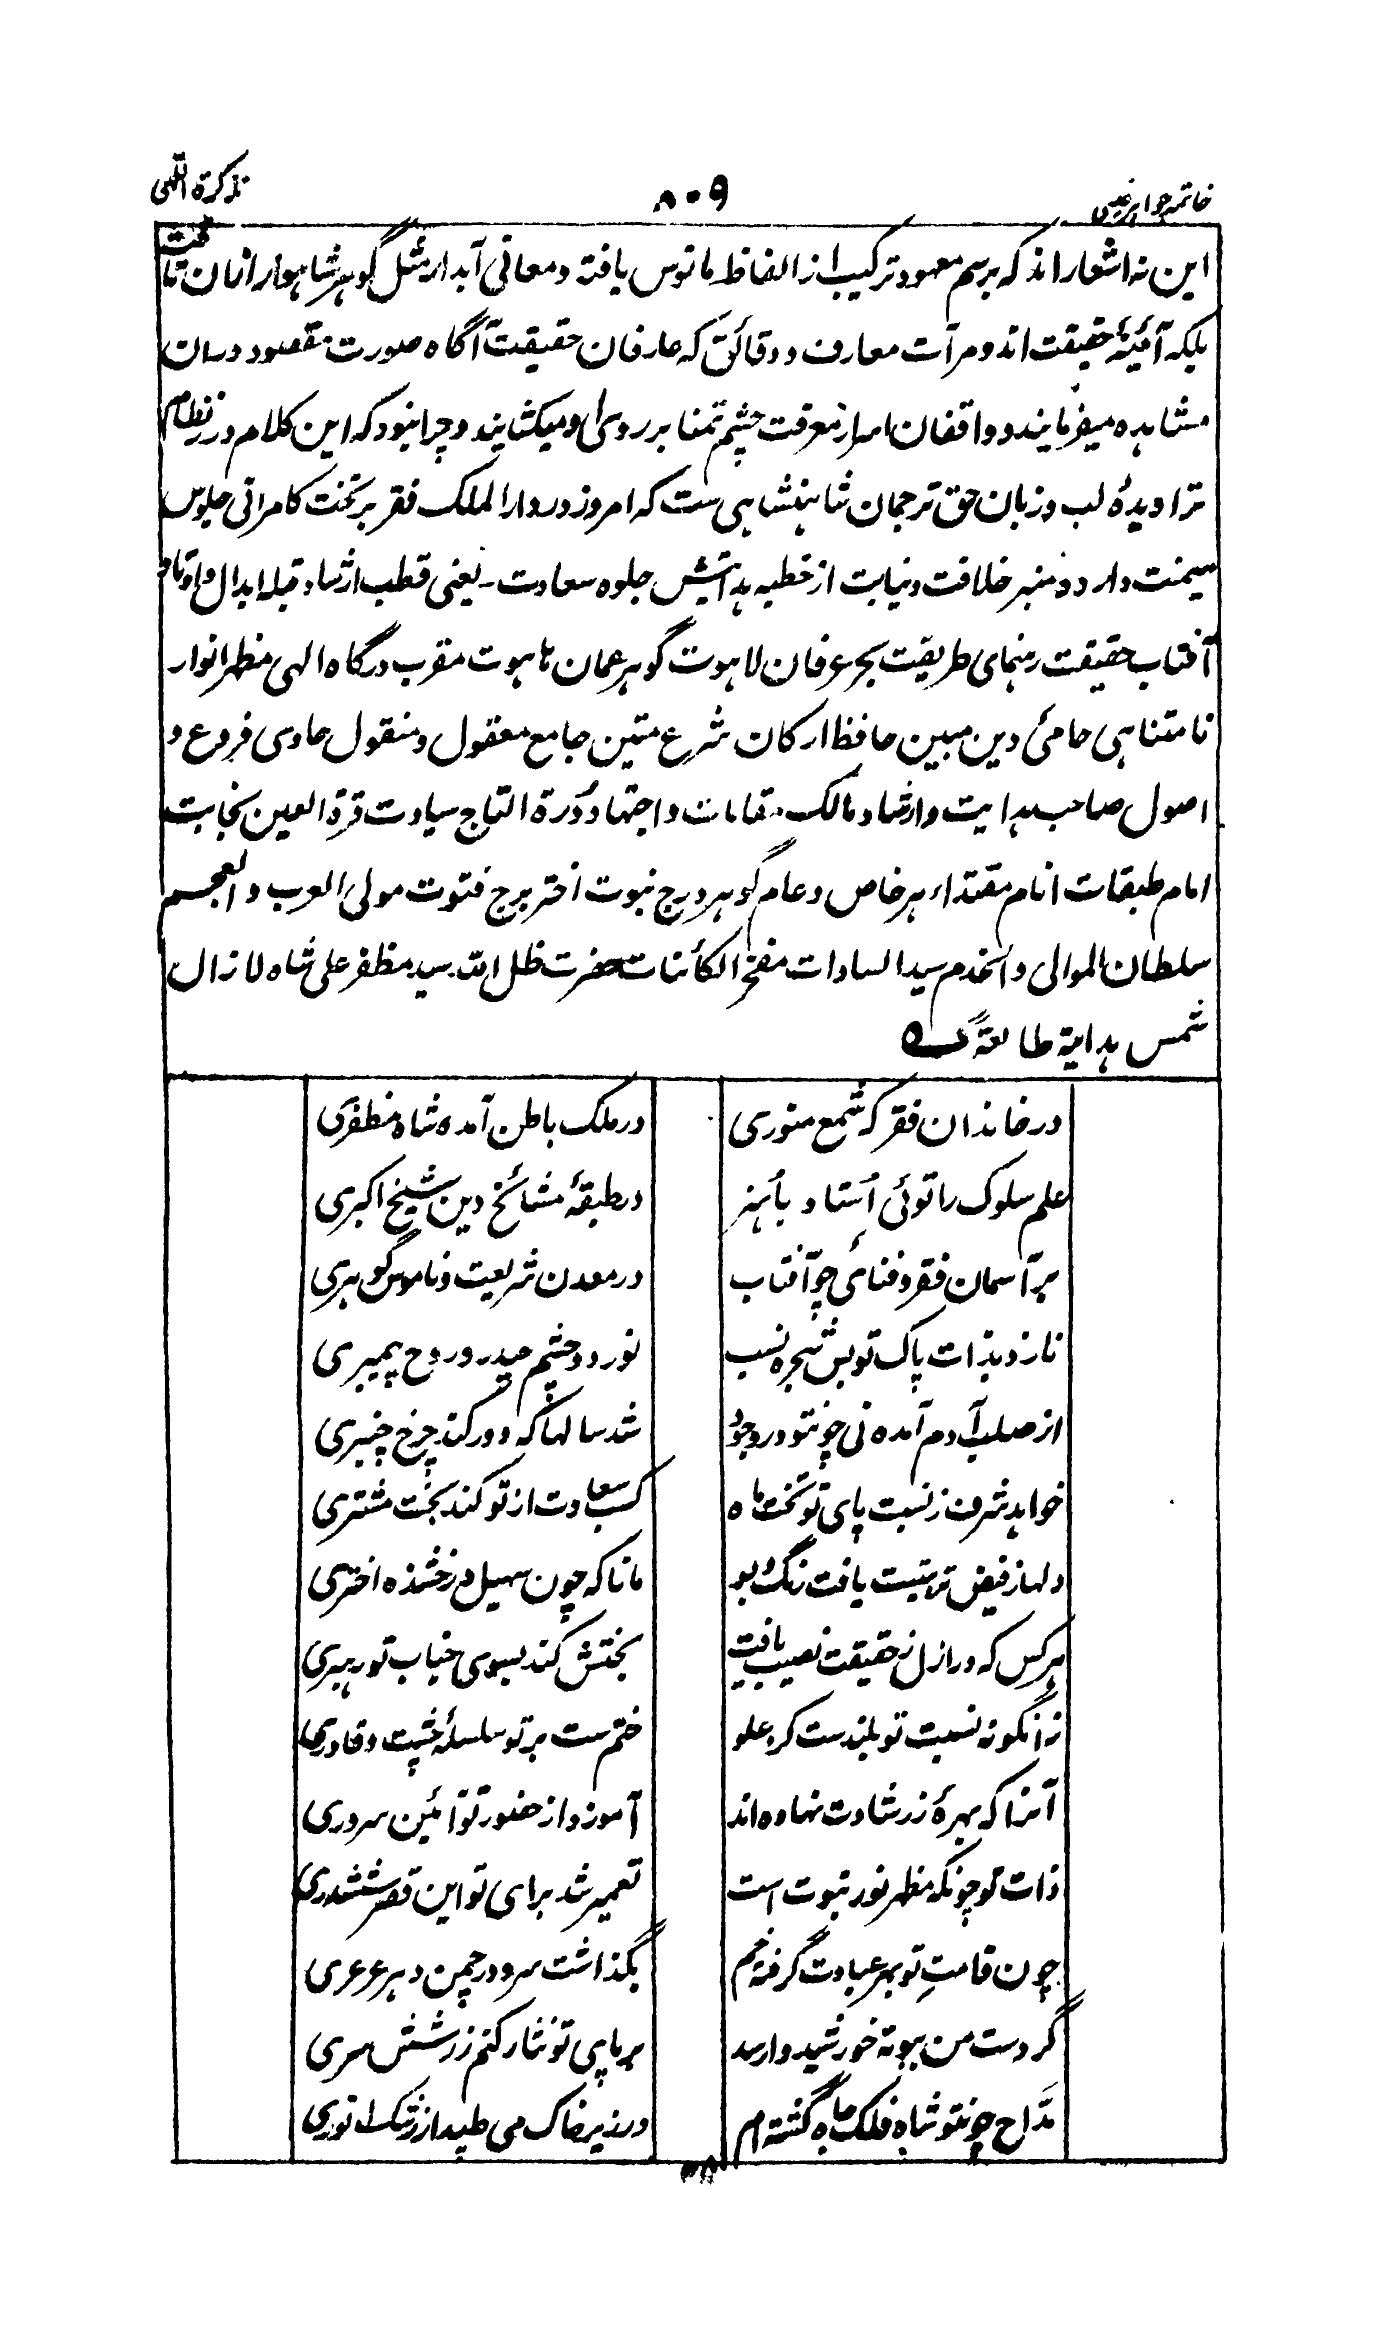 خاتمہ جواہر غیبی
۸۰۹
تذکرۃ اللہی
این نہ اشعار اند کہ برسم معہود ترکیب از الفاظ مانوس یافتہ و معانی آبدار مثل گوہر شاہوار ازان تافت
بلکہ آئینۂ حقیقت اند و مرآت معارف و دقائق کہ عارفان حقیقت آگاہ صورت مقصود دران
مشاہدہ میفرمایند و واقفان اسرار معرفت چشم تمنا بر روی او میکشایند و چرا نبود کہ این کلام در نظام
تراویدۂ لب و زبان حق ترجمان شاہنشاہی ست کہ امروز در دارالملک فقر بر تخت کامرانی جلوس
میمنت دارد و منبر خلافت و نیابت از خطبہ ہدایتش جلوہ سعادت ۔ یعنی قطب ارشاد قبلہ ابدال و اوتاد
آفتاب حقیقت رہنمای طریقت بحر عرفان لاہوت گوہر عمان ہاہوت مقرب درگاہ الہی مظہر انوار
نامتناہی حامیٔ دین مبین حافظ ارکان شرع متین جامع معقول و منقول حاوی فروع و
اصول صاحب ہدایت و ارشاد مالک مقامات و اجتہاد درۃ التاج سیادت قرۃ العین نجابت
امام طبقات انام مقتداء ہر خاص و عام گوہر درج نبوت اختر برج فتوت مولی العرب و العجم
سلطان الموالی و الخدم سید السادات مفخر الکائنات حضرت ظل اللہ سید مظفر علی شاہ لا زال
شمس ہدایتہ طالعۃً
در خاندان فقر کہ شمع منوری	در ملک باطن آمدہ شاہ مظفری
علم سلوک را توئی اُستاد باہنر	در طبقۂ مشائخ دین شیخ اکبری
بر آسمان فقر و فنائی چو آفتاب	در معدن شریعت و ناموس گوہری
نازد بذات پاک تو بس شجرہ نسب	نور دو چشم حیدر و روح پیمبری
از صلب آدم آمدہ نی چونتو در وجود	شد سالہا کہ دور کند چرخ چنبری
خواہد شرف ز نسبت پای تو تخت ماہ	کسب سعادت از تو کند بخت مشتری
دلہا ز فیض تربیتت یافت رنگ و بو	مانا کہ چون سہیل درخشندہ اختری
ہر کس کہ در ازل ز حقیقت نصیب یافت	بختش کند بسوی جناب تو رہبری
زانگونہ نسبت تو بلندست کز علو	ختم ست بر تو سلسلۂ چشت و قادری
آنرا کہ بہرۂ ز رشادت نہادہ اند	آموزد از حضور تو آئین سروری
ذات تو چونکہ مظہر نور نبوت است	تعمیر شد برای تو این قصر ششدری
چون قامتِ تو بہر عبادت گرفتہ خم	بگذاشت سرو در چمن دہر عرعری
گر دست من ببوتہ خورشید وا رسد	بر پای تو نثار کنم زر شش سری
مدّاح چونتو شاہ فلک جاہ گشتہ ام	در زیر خاک می طپد از رشک انوری